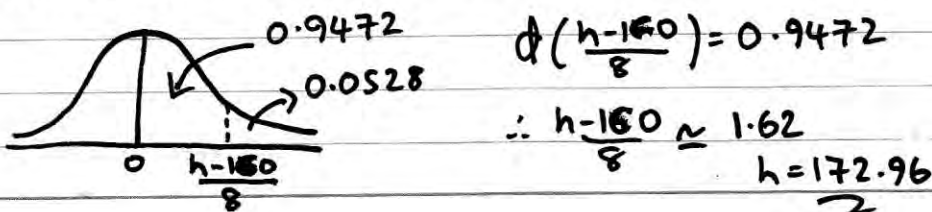 0.9472
0.0528
0
h-160
8
ɸ(h-160/8) = 0.9472
∴ h-160/8 ≃ 1.62
h = 172.96